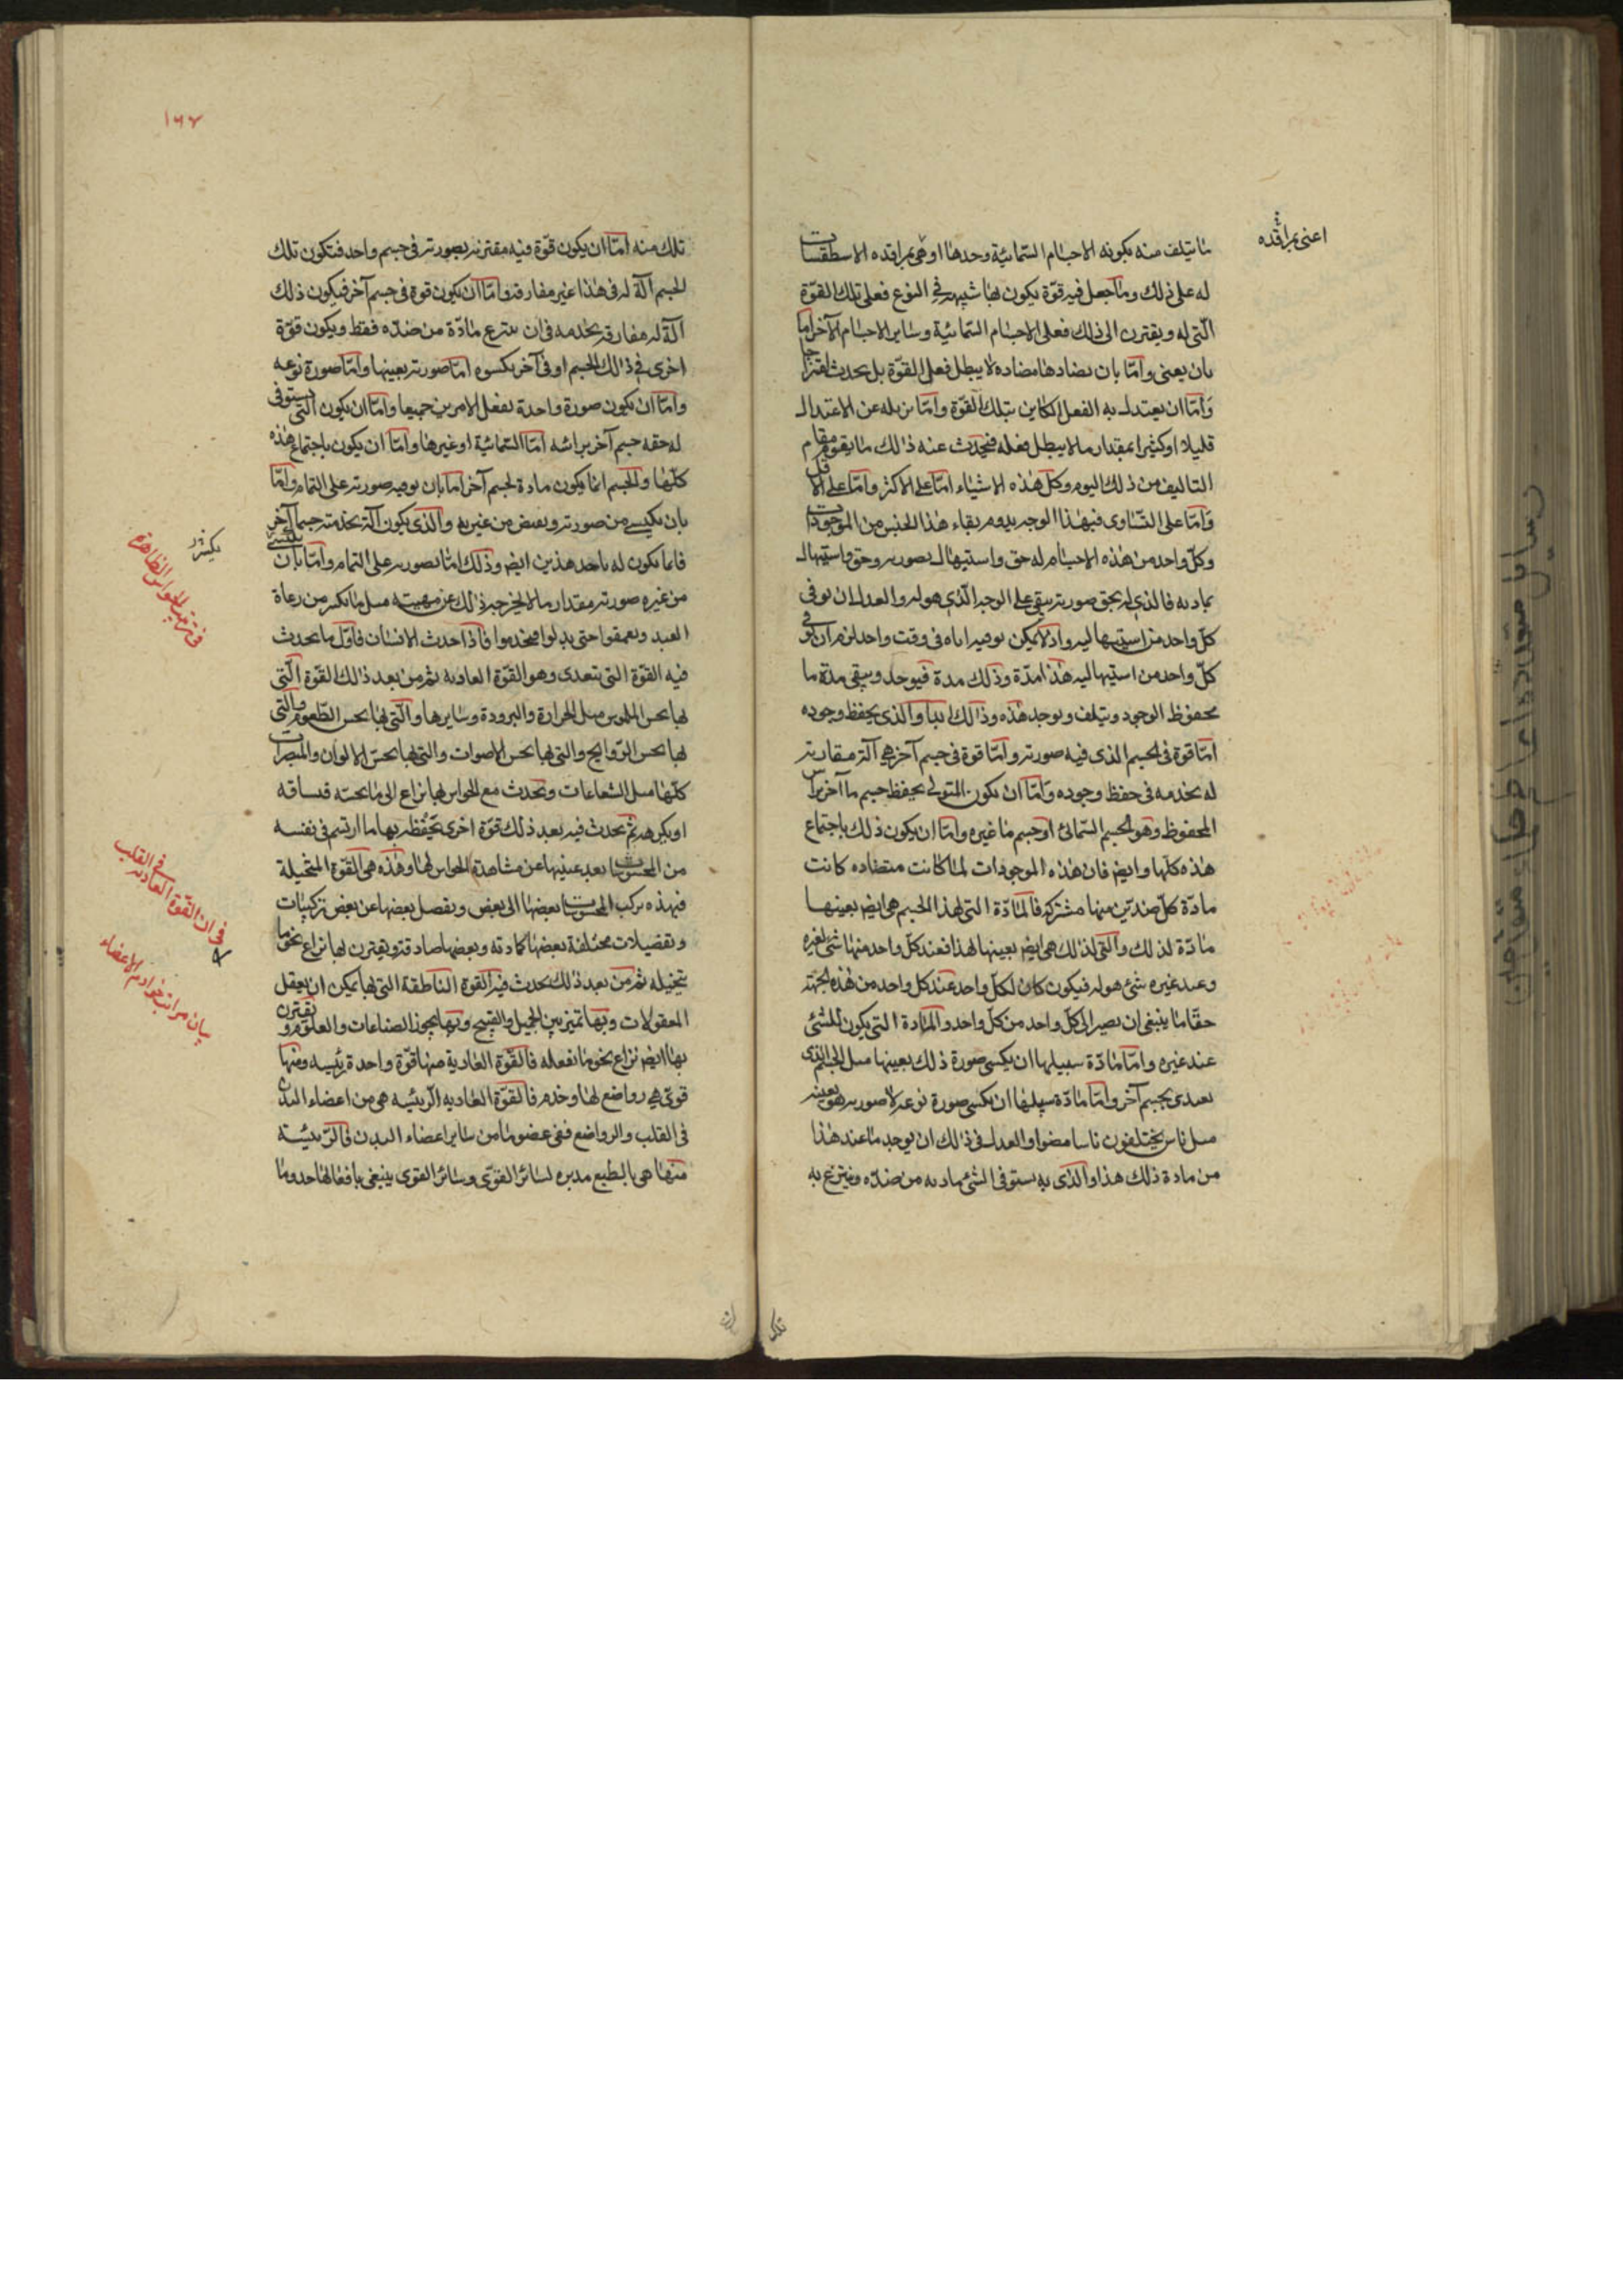 اعنى بمرافده
ما يتلف منه بكونه الاجسام السمائية وحدها او هى بمرافده الاسطقسات
له على ذلك وما جعل فيه قوة يكون لها شبيهه فى النوع فعلى تلك القوة
التى له ويقترن الى ذلك فعلى الاجسام السمائية وساير الاجسام الآخر اما
بان يعنى واما بان يضادها مضاده لا يبطل فعل القوة بل يحدث امتزاجا
واما ان يعتدل به الفعل الكاين بتلك القوة واما يزيله عن الاعتدال
قليلا او كثيرا بمقدار ما لا يبطل فعله فيحدث عنه ذلك ما يقوم مقام
التاليف من ذلك اليوم وكل هذه الاشياء اما على الاكثر واما على الاقل
واما على التساوى فبهذا الوجه يدوم بقاء هذا الجنس من الموجودات
وكل واحد من هذه الاجسام له حق واستيهال بصورته وحق واستيهال
بمادته فالذى له بحق صورته يبقى على الوجه الذى هو له والعدل ان يوفى
كل واحد من استيهاليه واذ لا يمكن توفيه اياه فى وقت واحد لزم ان يوفى
كل واحد من استيهاليه هذا مدة وذلك مدة فيوجد ويبقى مدة ما
محفوظ الوجود ويتلف ويوجد هذه وذلك ابدا والذى يحفظ وجوده
اما قوة فى الجسم الذى فيه صورته واما قوة فى جسم آخر هى آلة مقارنة
له يخدمه فى حفظ وجوده واما ان يكون المتولى بحفظ جسم ما آخر يراس
المحفوظ وهو الجسم السمائى او جسم ما غيره واما ان يكون ذلك باجتماع
هذه كلها وايضا فان هذه الموجودات لما كانت متضاده كانت
مادة كل ضدين منها مشتركة فالمادة التى لهذا الجسم هى ايضا بعينها
مادة لذلك والتى لذلك هى ايضا بعينها لهذا فعند كل واحد منها شئ لغيره
وعند غيره شئ هو له فيكون كان لكل واحد عند كل واحد من هذه الجهة
حقا ما ينبغى ان يصير الى كل واحد من كل واحد والمادة التى يكون للشئ
عند غيره واما مادة سبيلها ان يكسى صورة ذلك بعينها مثل الجسم الذى
يغتدى بجسم آخر واما مادة سبيلها ان يكسى صورة نوعه لا صورته هو بعينه
مثل ناس يختلفون ناسا مضوا والعدل فى ذلك ان يوجد ما عند هذا
من مادة ذلك هذا والذى به يستوفى الشئ مادته من ضده وينتزع به
تلك
١٦٧
تلك منه اما ان يكون قوة فيه مقترنة بصورته فى جسم واحد فتكون تلك
الجسم آلة له فى هذا غير مفارقة واما ان يكون قوة فى جسم آخر فيكون ذلك
آلة له مفارقة يخدمه فى ان ينتزع مادة من ضده فقط ويكون قوة
اخرى فى ذلك الجسم او فى آخر يكسوه اما صورته بعينها واما صورة نوعه
واما ان يكون صورة واحدة يفعل الامرين جميعا واما ان يكون التى يستوفى
له حقه جسم آخر يراسه اما السمائية او غيرها واما ان يكون باجتماع هذه
كلها والجسم انما يكون مادة لجسم آخر اما بان يوفيه صورته على التمام واما
بان يكسى من صورته وينقص من غيريه والذى يكون آلة يخدمته جسما آخر
فانما يكون له باحد هذين ايضا وذلك اما بصورته على التمام واما بان يكسى
من غيره صورته مقدار ما لا يخرجه ذلك عن مهيته مثل ما يكسر من رعاة
العبد ويقمقوا حتى يدلوا فيخدموا فاذا حدث الانسان فاول ما يحدث
فيه القوة التى يتغدى وهو القوة الغاديه ثم من بعد ذلك القوة التى
بها يحس الملموس مثل الحرارة والبرودة وسايرها والتى بها يحس الطعوم والتى
بها يحس الروايح والتى بها يحس الاصوات والتى بها يحس الالوان والمبصرات
كلها مثل الشعاعات ويحدث مع الحواس بها نزاع الى ما يحسه فيشتاقه
او يكرهه ثم يحدث فيه بعد ذلك قوة اخرى يحفظ بها ما ارتسم فى نفسه
من المحسوسات بعد غيبتها عن مشاهدة الحواس لها وهذه هى القوة المتخيلة
فبهذه يركب المحسوسات بعضها الى بعض ويفصل بعضها عن بعض تركيبات
وتفصيلات مختلفة بعضها كاذبة وبعضها صادقة ويقترن لها نزاع نحو ما
يتخيله ثم من بعد ذلك يحدث فيه القوة الناطقة التى بها يمكن ان يعقل
المعقولات وبها تميز بين الجميل والقبيح وبها يحوز الصناعات والعلوم ويقترن
بها ايضا نزاع نحو ما يفعله فالقوة الغاديه منها قوة واحدة رئيسه ومنها
قوى هى رواضع لها وخدم فالقوة الغاديه الرئيسه هى من اعضاء البدن
فى القلب والرواضع ففى عضو ما من ساير اعضاء البدن فالرئيسة
منها هى بالطبع مدبره لسائر القوى وسائر القوى ينبغى بافعالها حدو ما
يكسر
فى ترتيب الحواس الظاهرة
فى ان القوة الغاديه فى القلب
بيان مراتب خوادم الاعضاء